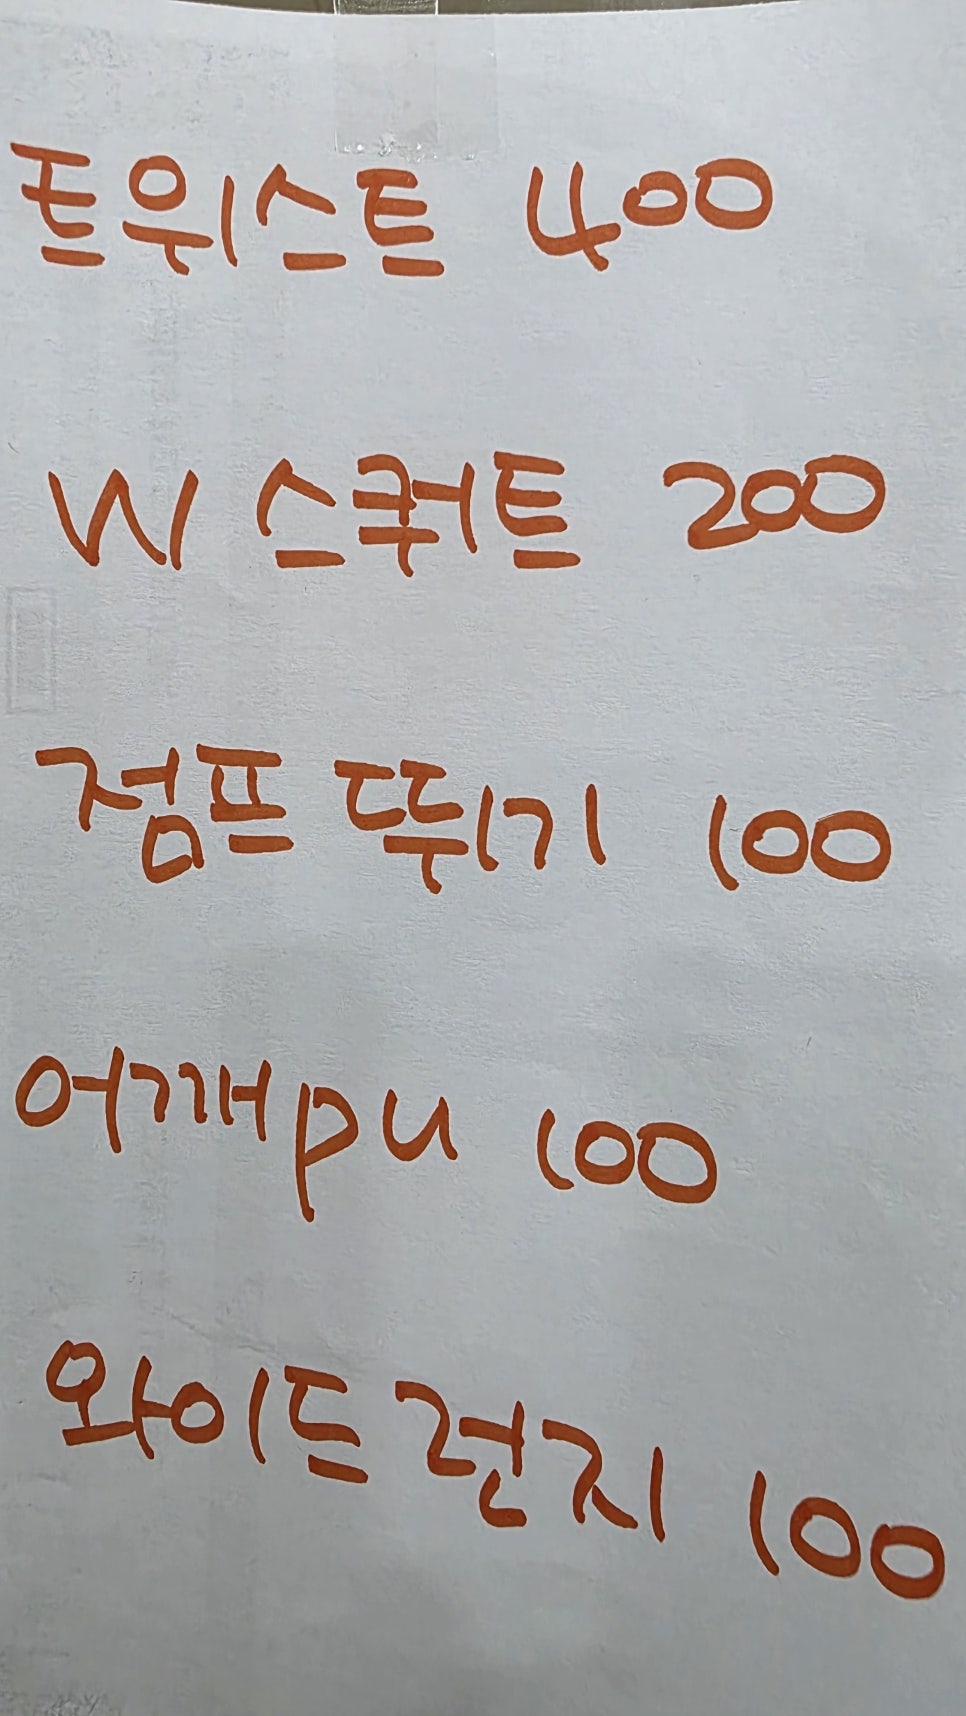 트위스트 400
W 스쿼트 200
점프 뛰기 100
어깨pu 100
와이드런지 100